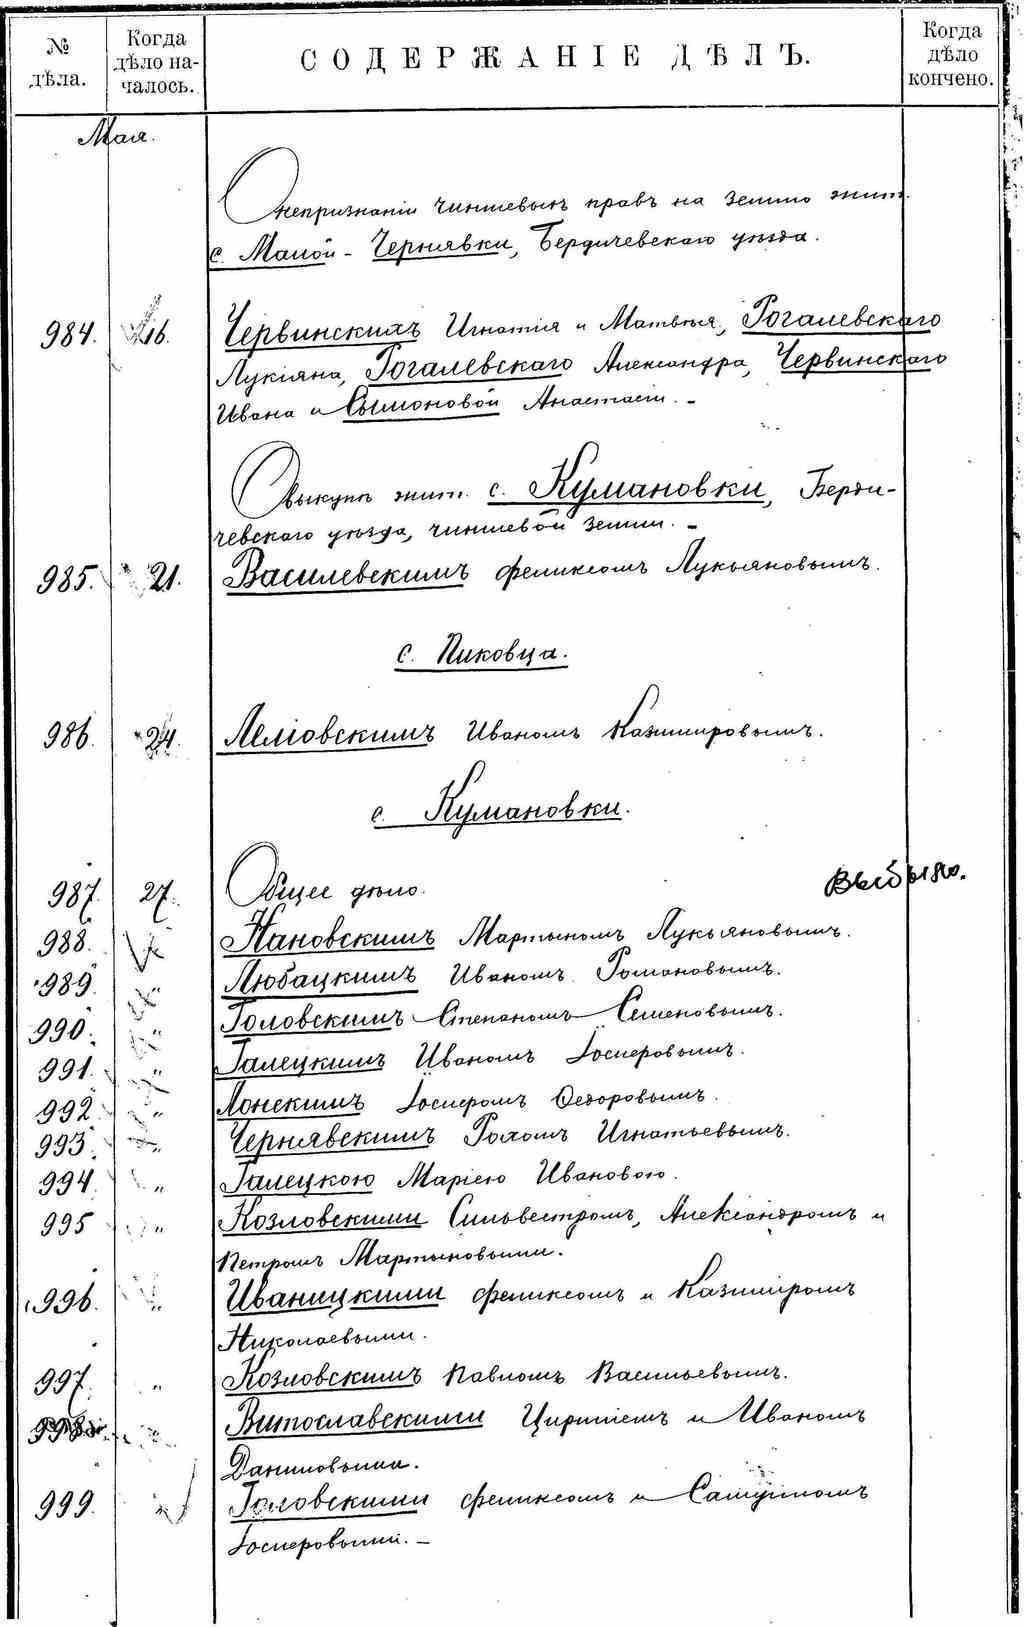 № дѣла.
Когда дѣло на-чалось.
СОДЕРЖАНІЕ ДѢЛЪ.
Когда дѣло кончено.
Мая.
О непризнаніи чиншевыхъ правъ на землю жит.
с. Малой-Чернявки, Бердичевскаго уѣзда.
984. 16. Червинскихъ Игнатія и Матвѣя, Рогалевскаго
Лукіяна, Рогалевскаго Александра, Червинскаго
Ивана и Сымоновой Анастасіи. –
О выкупѣ жит. с. Кумановки, Берди-
чевскаго уѣзда, чиншевой земли. –
985. 21. Василевскимъ Феликсомъ Лукьяновымъ.
с. Пиковца.
986. 24. Иваномъ Казимировымъ.
с. Кумановки.
987. 27. Общее дѣло. Выбыло.
988. Яновскимъ Мартыномъ Лукьяновымъ.
989. " Любацкимъ Иваномъ Романовымъ.
990. " Головскимъ Степаномъ Семеновымъ.
991. " Галецкимъ Иваномъ Іосиеровымъ.
992. " Лонскимъ Іосиеромъ Ѳедоровымъ.
993. " Чернявскимъ Рохомъ Игнатьевымъ.
994. " Галецкою Маріею Ивановою.
995 " Козловскими Сильвестромъ, Александромъ и
Петромъ Мартыновыми.
996. " Иваницкими Феликсомъ и Казиміромъ
Николаевыми.
997. " Козловскимъ Павломъ Васильевымъ.
998. " Витославскими и Иваномъ
Даниловыми.
999. " Головскими Феликсомъ и
Іосиеровыми. –